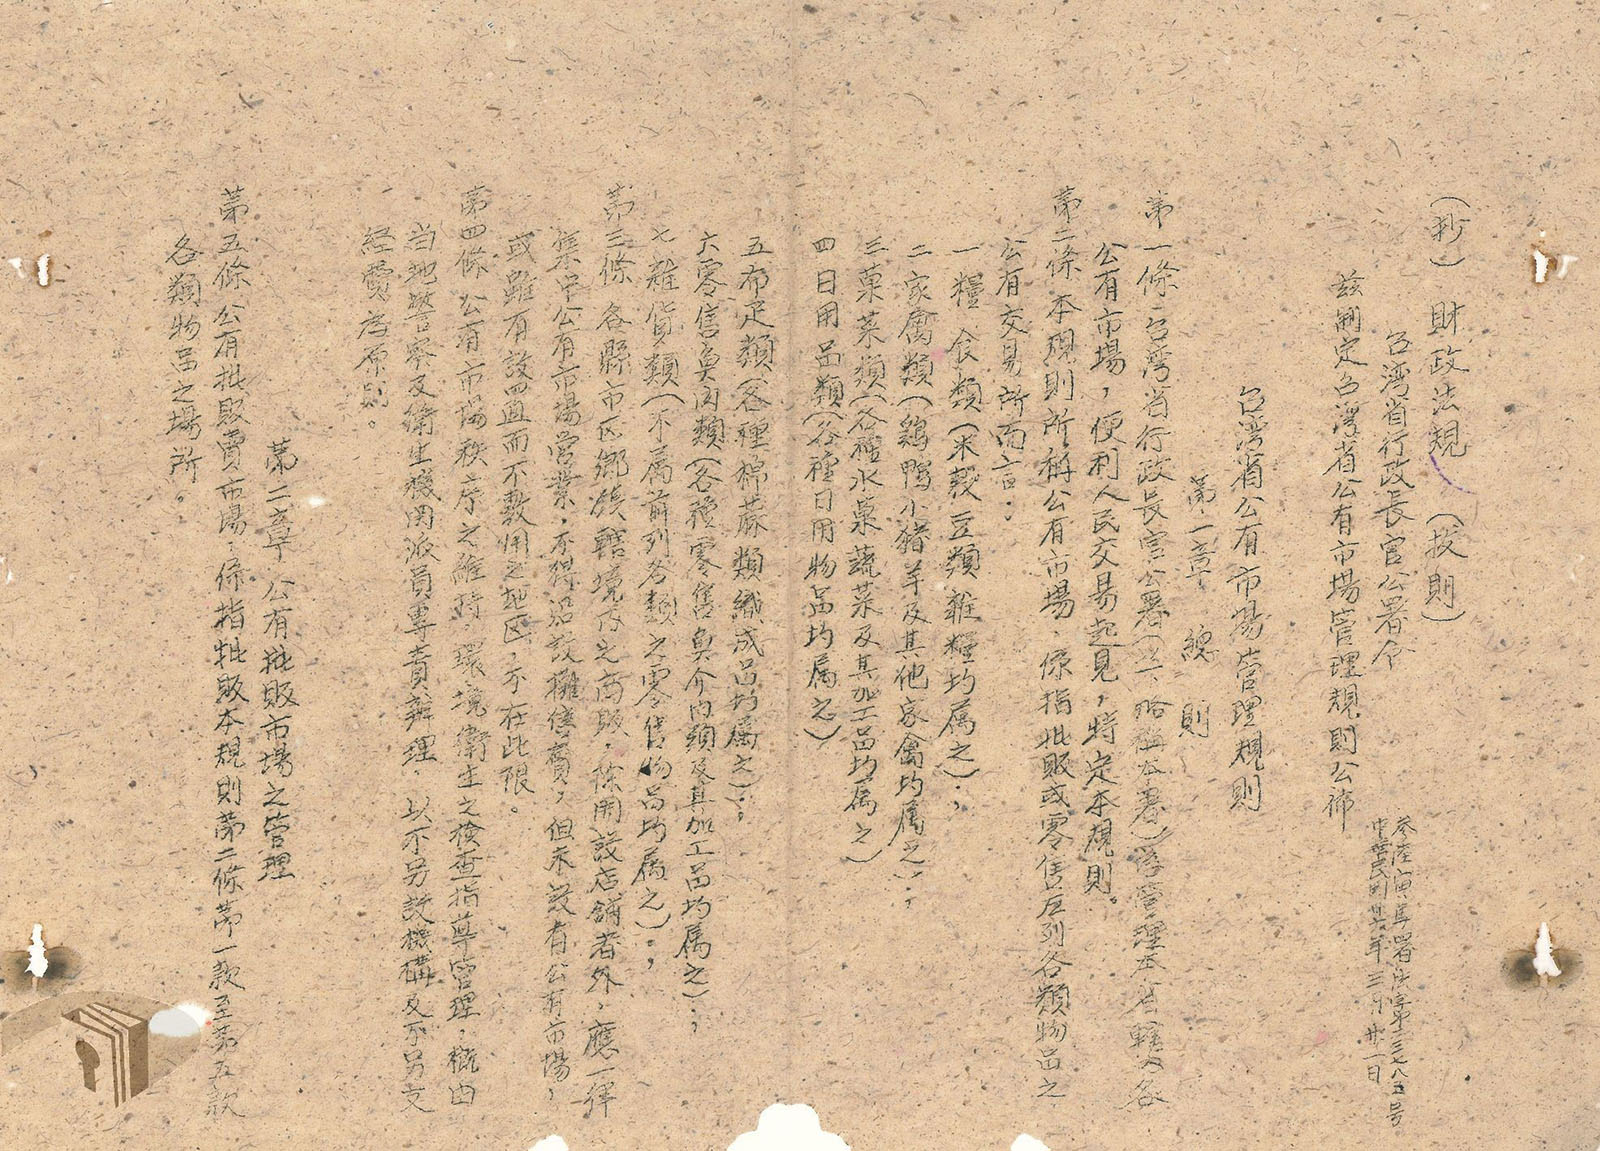 (抄)財政法規 (技則)
台湾省行政長官公署令
中華民国卅六年三月廿一日
茲制定台湾省公有市場管理規則公佈
台湾省公有市場管理規則
第一章 總則
第一條 台湾省行政長官公署(以下略称本署)為管理本省轄內各
公有市場,便利人民交易起見,特定本規則。
第二條 本規則所称公有市場,係指批販或零售左列各類物品之
公有交易所而言:
一 糧食類(米穀豆類雜糧均屬之);
二 家禽類(鷄鴨小猪羊及其他家禽均屬之);
三 菓菜類(各種水菓蔬菜及其加工品均屬之)
四 日用品類(各種日用物品均屬之)
五 布疋類(各種棉蔴類織成品均屬之);
六 零售魚肉類(各種零售魚介肉類及其加工品均屬之);
七 雜貨類(不屬前列各類之零售物品均屬之);
第三條 各縣市区鄉鎮轄境內之商販,除開設店舖者外,應一律
集中公有市場営業,不得沿設攤售賣,但未設有公有市場,
或雖有設置而不敷用之地区,不在此限。
第四條 公有市場秩序之維持,環境衛生之検查指導管理,概由
当地警察及衛生機関派員專責辦理,以不另設機構及不另支
経費為原則。
第二章 公有批販市場之管理
第五條 公有批販賣市場,係指批販本規則第二條第一款至第五款
各類物品之場所。